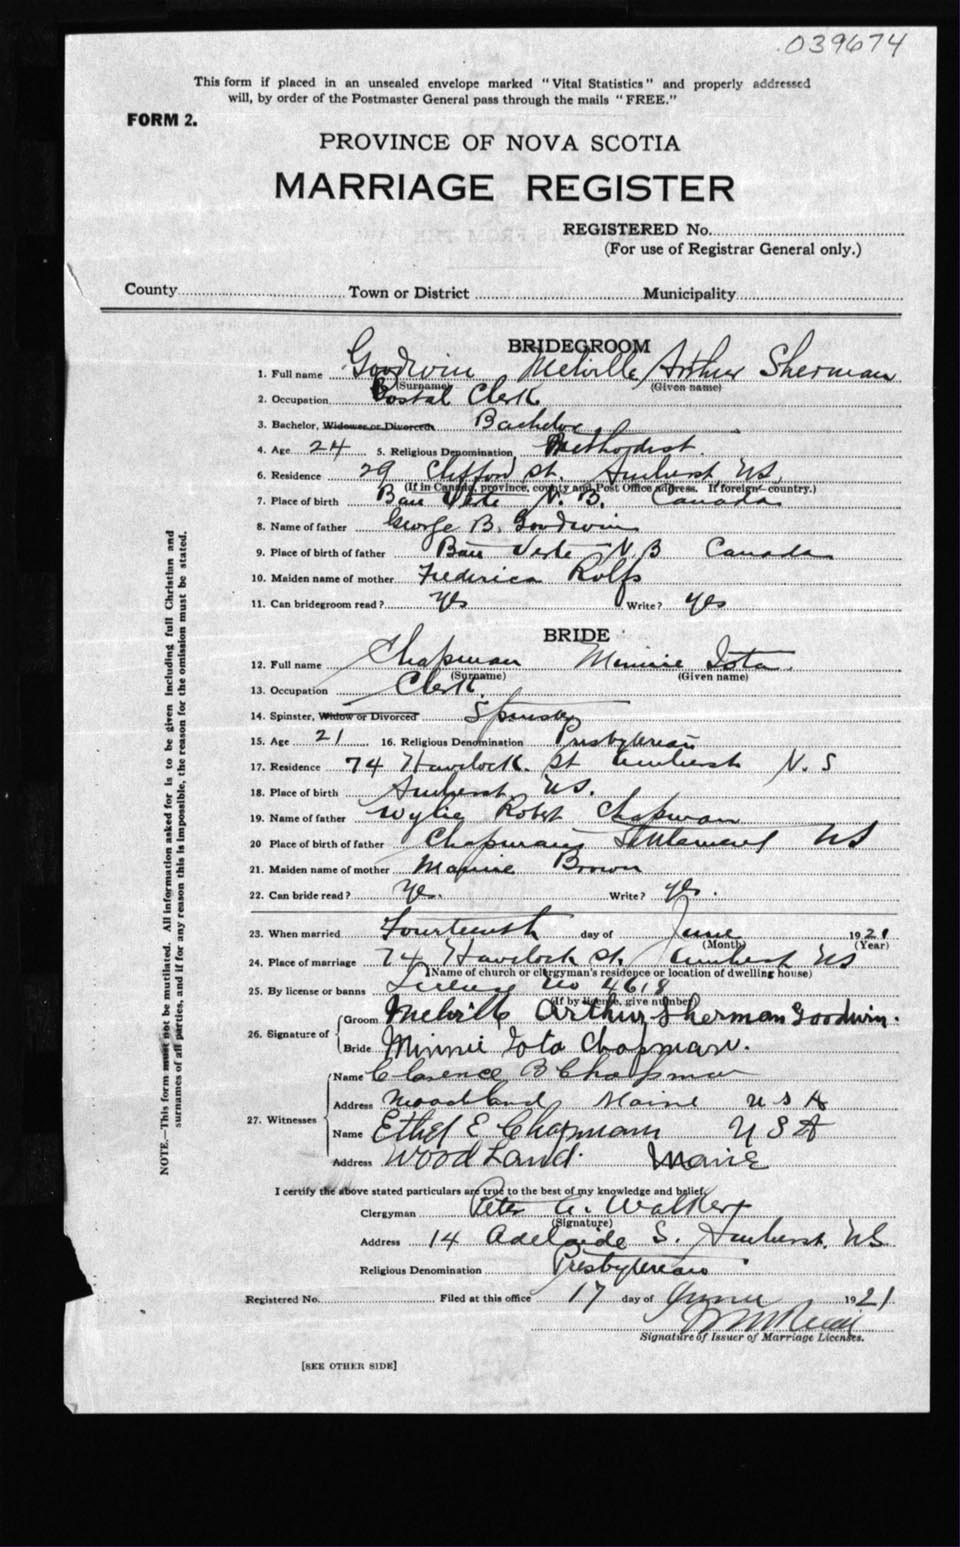 039674
This form if placed in an unsealed envelope marked "Vital Statistics" and properly addressed
will, by order of the Postmaster General pass through the mails "FREE."
FORM 2.
PROVINCE OF NOVA SCOTIA
MARRIAGE REGISTER
REGISTERED No.
(For use of Registrar General only.)
County Town or District Municipality
BRIDEGROOM
1. Full name Goodwin Melville Arthur Sherman
(Surname) (Given name)
2. Occupation Postal Clerk
3. Bachelor, Widower or Divorced Bachelor
4. Age 24 5. Religious Denomination Methodist
6. Residence 29 Clifford St. Amherst NS
(If in Canada, province, county and Post Office address. If foreign country.)
7. Place of birth Baie Verte N. B. Canada
8. Name of father George B. Goodwin
9. Place of birth of father Baie Verte N.B Canada
10. Maiden name of mother Federica Rolfs
11. Can bridegroom read? Yes Write? Yes
BRIDE
12. Full name Chapman Minnie Iota
(Surname) (Given name)
13. Occupation Clerk
14. Spinster, Widow or Divorced Spinster
15. Age 21 16. Religious Denomination Presbyterian
17. Residence 74 Havelock. St Amherst N. S
18. Place of birth Amherst NS.
19. Name of father Wylie Robert Chapman
20 Place of birth of father Chapmans Settlement NS
21. Maiden name of mother Brown
22. Can bride read? Yes. Write? yes.
23. When married Fourteenth day of June 1921
(Month) (Year)
24. Place of marriage 74 Havelock St. Amherst NS
(Name of church or clergyman's residence or location of dwelling house)
25. By license or banns License No 4618
(If by license, give number)
26. Signature of Groom Melville Arthur Sherman Goodwin.
Bride Minnie Iota Chapman.
27. Witnesses Name Clarence B Chapman
Address Woodland Maine U S A
Name Ethel E Chapman U S A
Address Woodland. Maine
I certify the above stated particulars are true to the best of my knowledge and belief.
Clergyman Peter G. Walker
(Signature)
Address 14 Adelaide S. Amherst. NS
Religious Denomination Presbyterian
Registered No. Filed at this office 17 day of June 1921
Signature of Issuer of Marriage Licenses.
[SEE OTHER SIDE]
NOTE.—This form must not be mutilated. All information asked for is to be given including full Christian and
surnames of all parties, and if for any reason this is impossible, the reason for the omission must be stated.